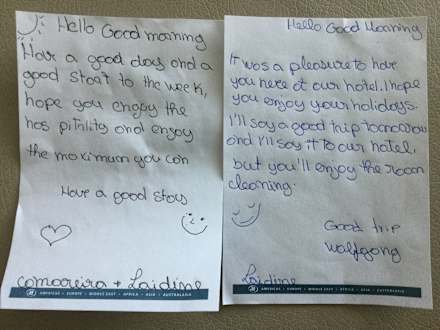 Hello Good morning
Have a good day and a
good start to the week,
hope you enjoy the
hos pitality and enjoy
the maximum you can
Have a good stay
comareira + Laidine
AMERICAS • EUROPE • MIDDLE EAST • AFRICA • ASIA • AUSTRALASIA
Hello Good Morning
It was a pleasure to have
you here at our hotel. I hope
you enjoy your holidays.
I'll say a good trip tomorrow
and I'll say it to our hotel,
but you'll enjoy the room
cleaning.
Good trip
Walfgang
Laidine
AMERICAS • EUROPE • MIDDLE EAST • AFRICA • ASIA • AUSTRALASIA